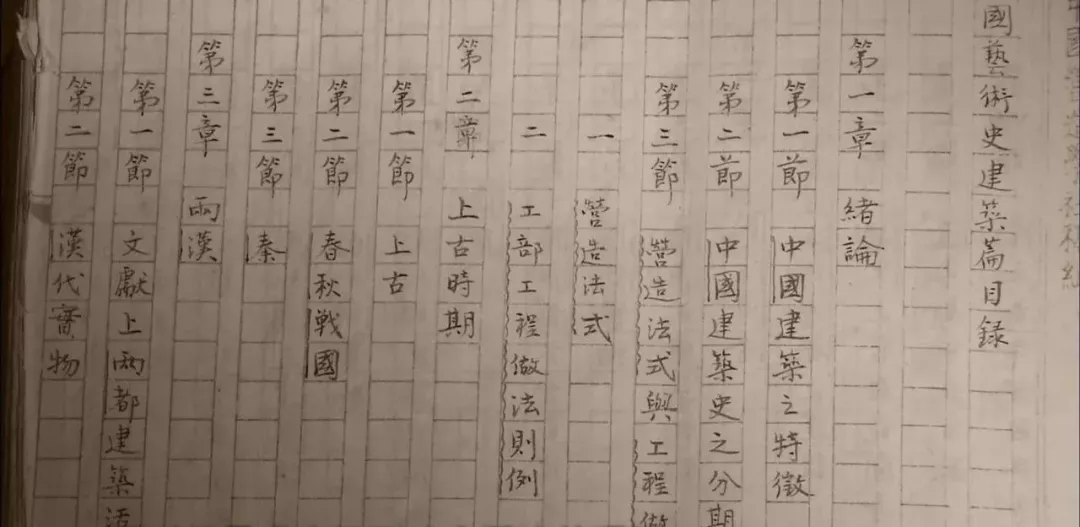 國藝術史建築篇目録
第一章 緒論
第一節 中國建築之特徵
第二節 中國建築史之分期
第三節 營造法式與工程做
一 營造法式
二 工部工程做法則例
第二章 上古時期
第一節 上古
第二節 春秋戰國
第三節 秦
第三章 兩漢
第一節 文獻上兩都建築活
第二節 漢代實物